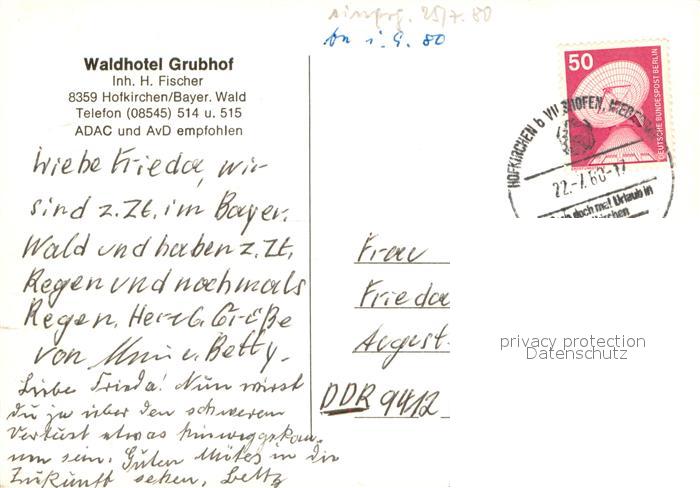 eingeg. 25/7. 80
Waldhotel Grubhof
Inh. H. Fischer
8359 Hofkirchen/Bayer. Wald
Telefon (08545) 514 u. 515
ADAC und AvD empfohlen
50
DEUTSCHE BUNDESPOST BERLIN
HOFKIRCHEN b VILSHOFEN, NIEDERB
22.-7.80-17
doch mal Urlaub in
kirchen
Liebe Frieda, wir
sind z. Zt. im Bayer.
Wald und haben z. Zt.
Regen und nochmals
Regen. Herzl. Grüße
von u. Betty.
Liebe Frieda! Nun wirst
du ja über den schweren
Verlust etwas hinweggekom-
men sein. Guten Mutes in die
Zukunft sehen, Betty
Frau
Frieda
August
DDR 9412
privacy protection
Datenschutz